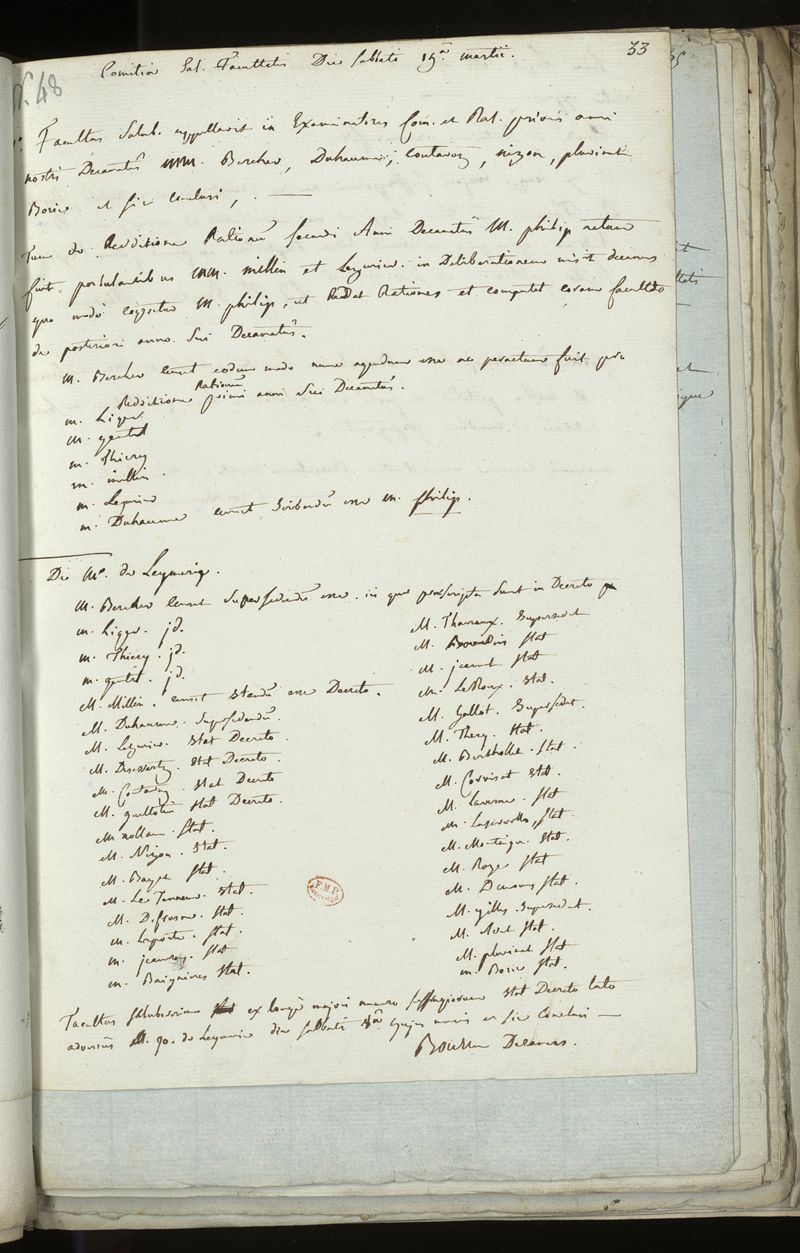 33
N. 48
Comitia Sal. Facultatis Die sabbati 19.a martii.
Facultas Salub. appellavit in Examinatores Com. et Rat. prioris anni
nostri Decanatûs MM. Bercher, Duhaume, Coutavoz, nizon, pluvinet
Borie et sic conclusi,
Tum de Redditione Rationum secundi Anni Decanatûs M. philip
fuit, postulantibus MM. millin et in Deliberationem misit decanus
quo modo M. philip, ut Reddat Rationes et computet coram facultate
de posteriori anno sui Decanatûs.
M. Bercher censet eodem modo nunc agendum esse ac peractum fuit pro
Redditione Rationum primi anni sui Decanatûs.
m.
m. gentil
m. Thiery
m. millin
m.
m. Duhaume censet esse M. philip.
De Mo. de
M. Bercher censet supersedendum esse iis quae praescripta sunt in Decreto
m. jd.
m. Thiery. jd.
m. gentil. jd.
M. Millin. censet standum esse Decreto.
M. Duhaume. supersedendum.
M. stat Decreto.
M. Dessessartz. stat Decreto.
M. Coutavoz. stat Decreto
M. guillotin stat Decreto.
M. nollan. stat.
M. Nizon. stat.
M. stat.
M. Le Tenneur. stat
M. Difrasne. stat.
m. Laporte. stat.
m. jeanroy. stat
m. Baignères stat.
M. Thauraux. supersedet
M. Bourdois stat
M. jeannet stat
M. LeRoux. stat.
M. Gallot. supersedet.
M. Thery. stat.
M. Bertholle. stat.
M. Corvisart stat.
M. Laverne. stat
M. stat.
M. Montaigu. stat.
M. Roze stat
M. stat.
M. gilles supersedet.
M. stat.
M. pluvinet stat
m. Borie stat.
Facultas saluberrima ex longè majori numero suffragiorum stat Decreto lato
adversus M. de die sabbati hujus anni et sic conclusi
Bourru Decanus.